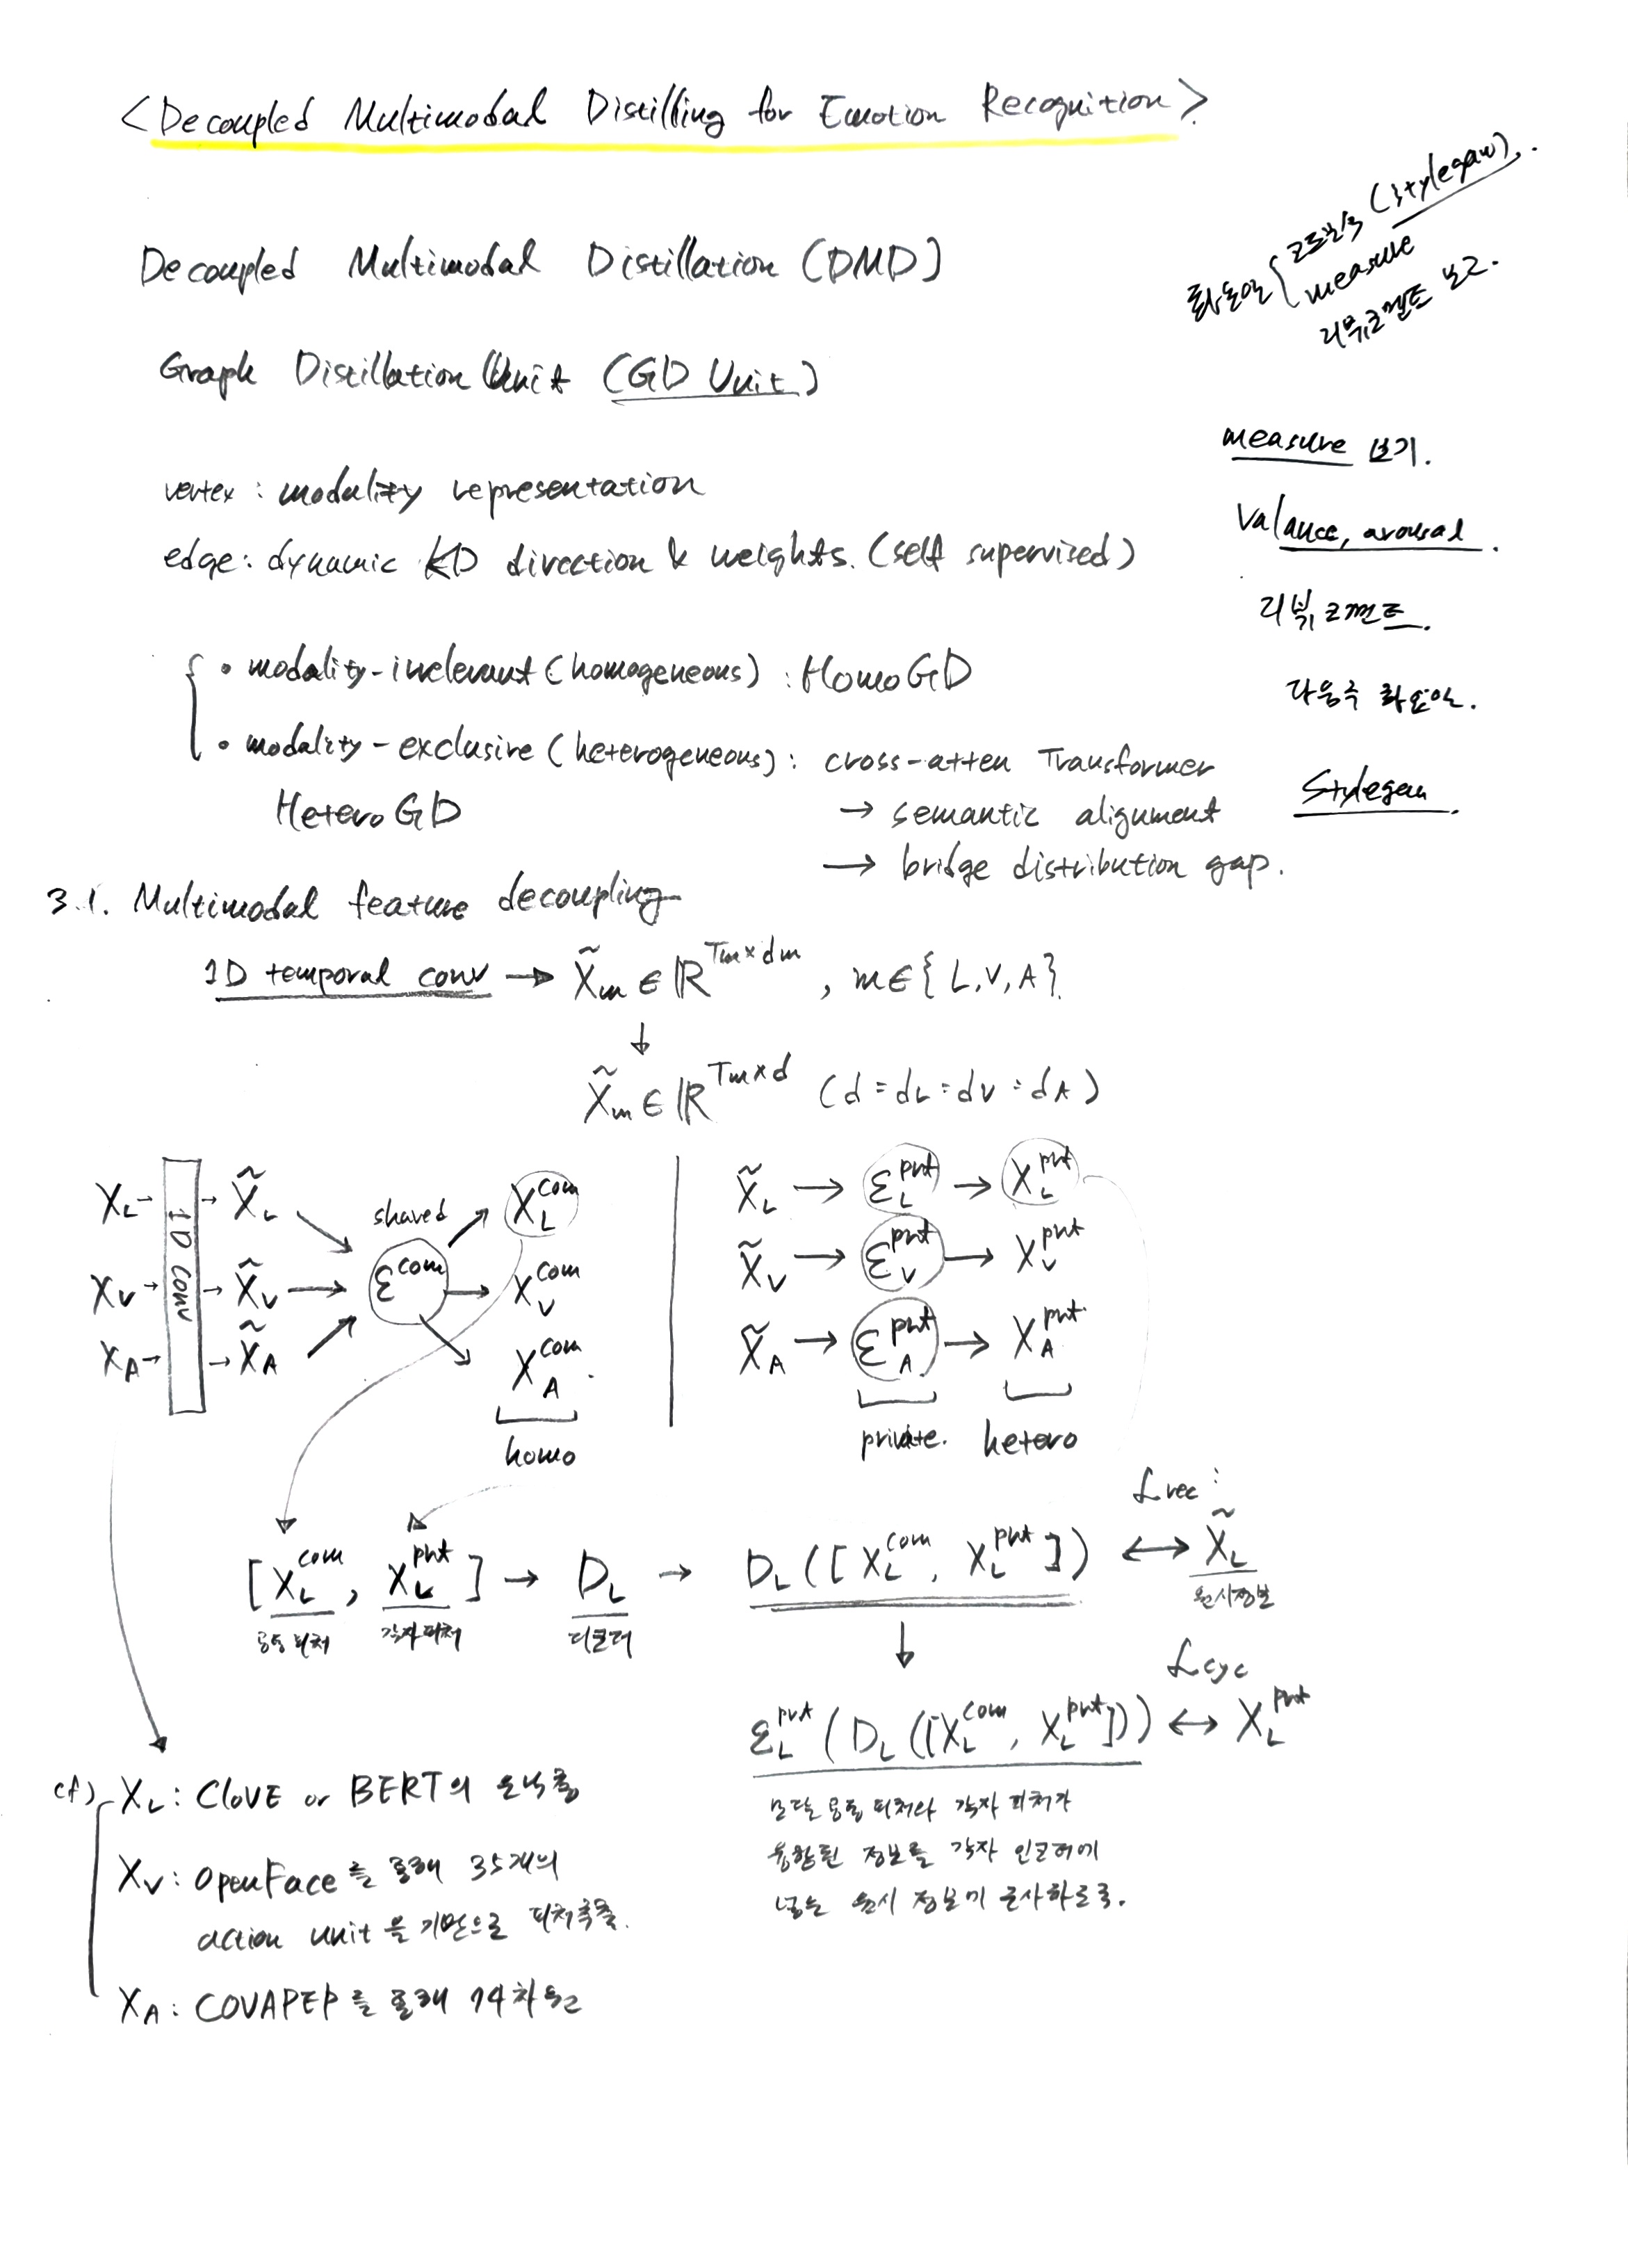 <Decoupled Multimodal Distilling for Emotion Recognition>
Decoupled Multimodal Distillation (DMD)
Graph Distillation Unit (GD Unit)
vertex : modality representation
edge : dynamic KD direction & weights. (self supervised)
• modality-irrelevant (homogeneous) : HomoGD
• modality-exclusive (heterogeneous) : cross-atten Transformer
HeteroGD
→ semantic alignment
→ bridge distribution gap.
화요일 { 코드분석 (stylegan).
measure
리뷰코멘트 보고.
measure 보기.
Valance, arousal.
리뷰 코멘트.
다음주 화요일.
Stylegan.
3.1. Multimodal feature decoupling
1D temporal conv → X̃m ∈ ℝ^Tm×dm , m∈{L,V,A}
↓
X̃m ∈ ℝ^Tm×d (d=dL=dV=dA)
XL → 1D conv → X̃L
XV → X̃V
XA → X̃A
shared
Ɛ^com
XL^com
XV^com
XA^com.
homo
X̃L → ƐL^prt → XL^prt
X̃V → ƐV^prt → XV^prt
X̃A → ƐA^prt → XA^prt
private. hetero
Lrec :
[XL^com, XL^prt] → DL → DL([XL^com, XL^prt]) ↔ X̃L
공통피처 각자피처 디코더 원시정보
↓
Lcyc
ƐL^prt(DL([XL^com, XL^prt])) ↔ XL^prt
모달 공통 피처와 각자 피처가
융합된 정보를 각자 인코더에
넣는 원시 정보에 근사하도록.
cf) XL : GloVE or BERT의
XV : OpenFace를 통해 35개의
action unit을 기반으로 피처추출.
XA : COVAPEP를 통해 74차원